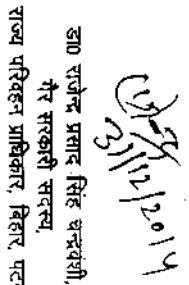 31/12/2014
डा० राजेन्द्र प्रसाद सिंह चन्द्रवंशी,
गैर सरकारी सदस्य,
राज्य परिवहन प्राधिकार, बिहार, पट